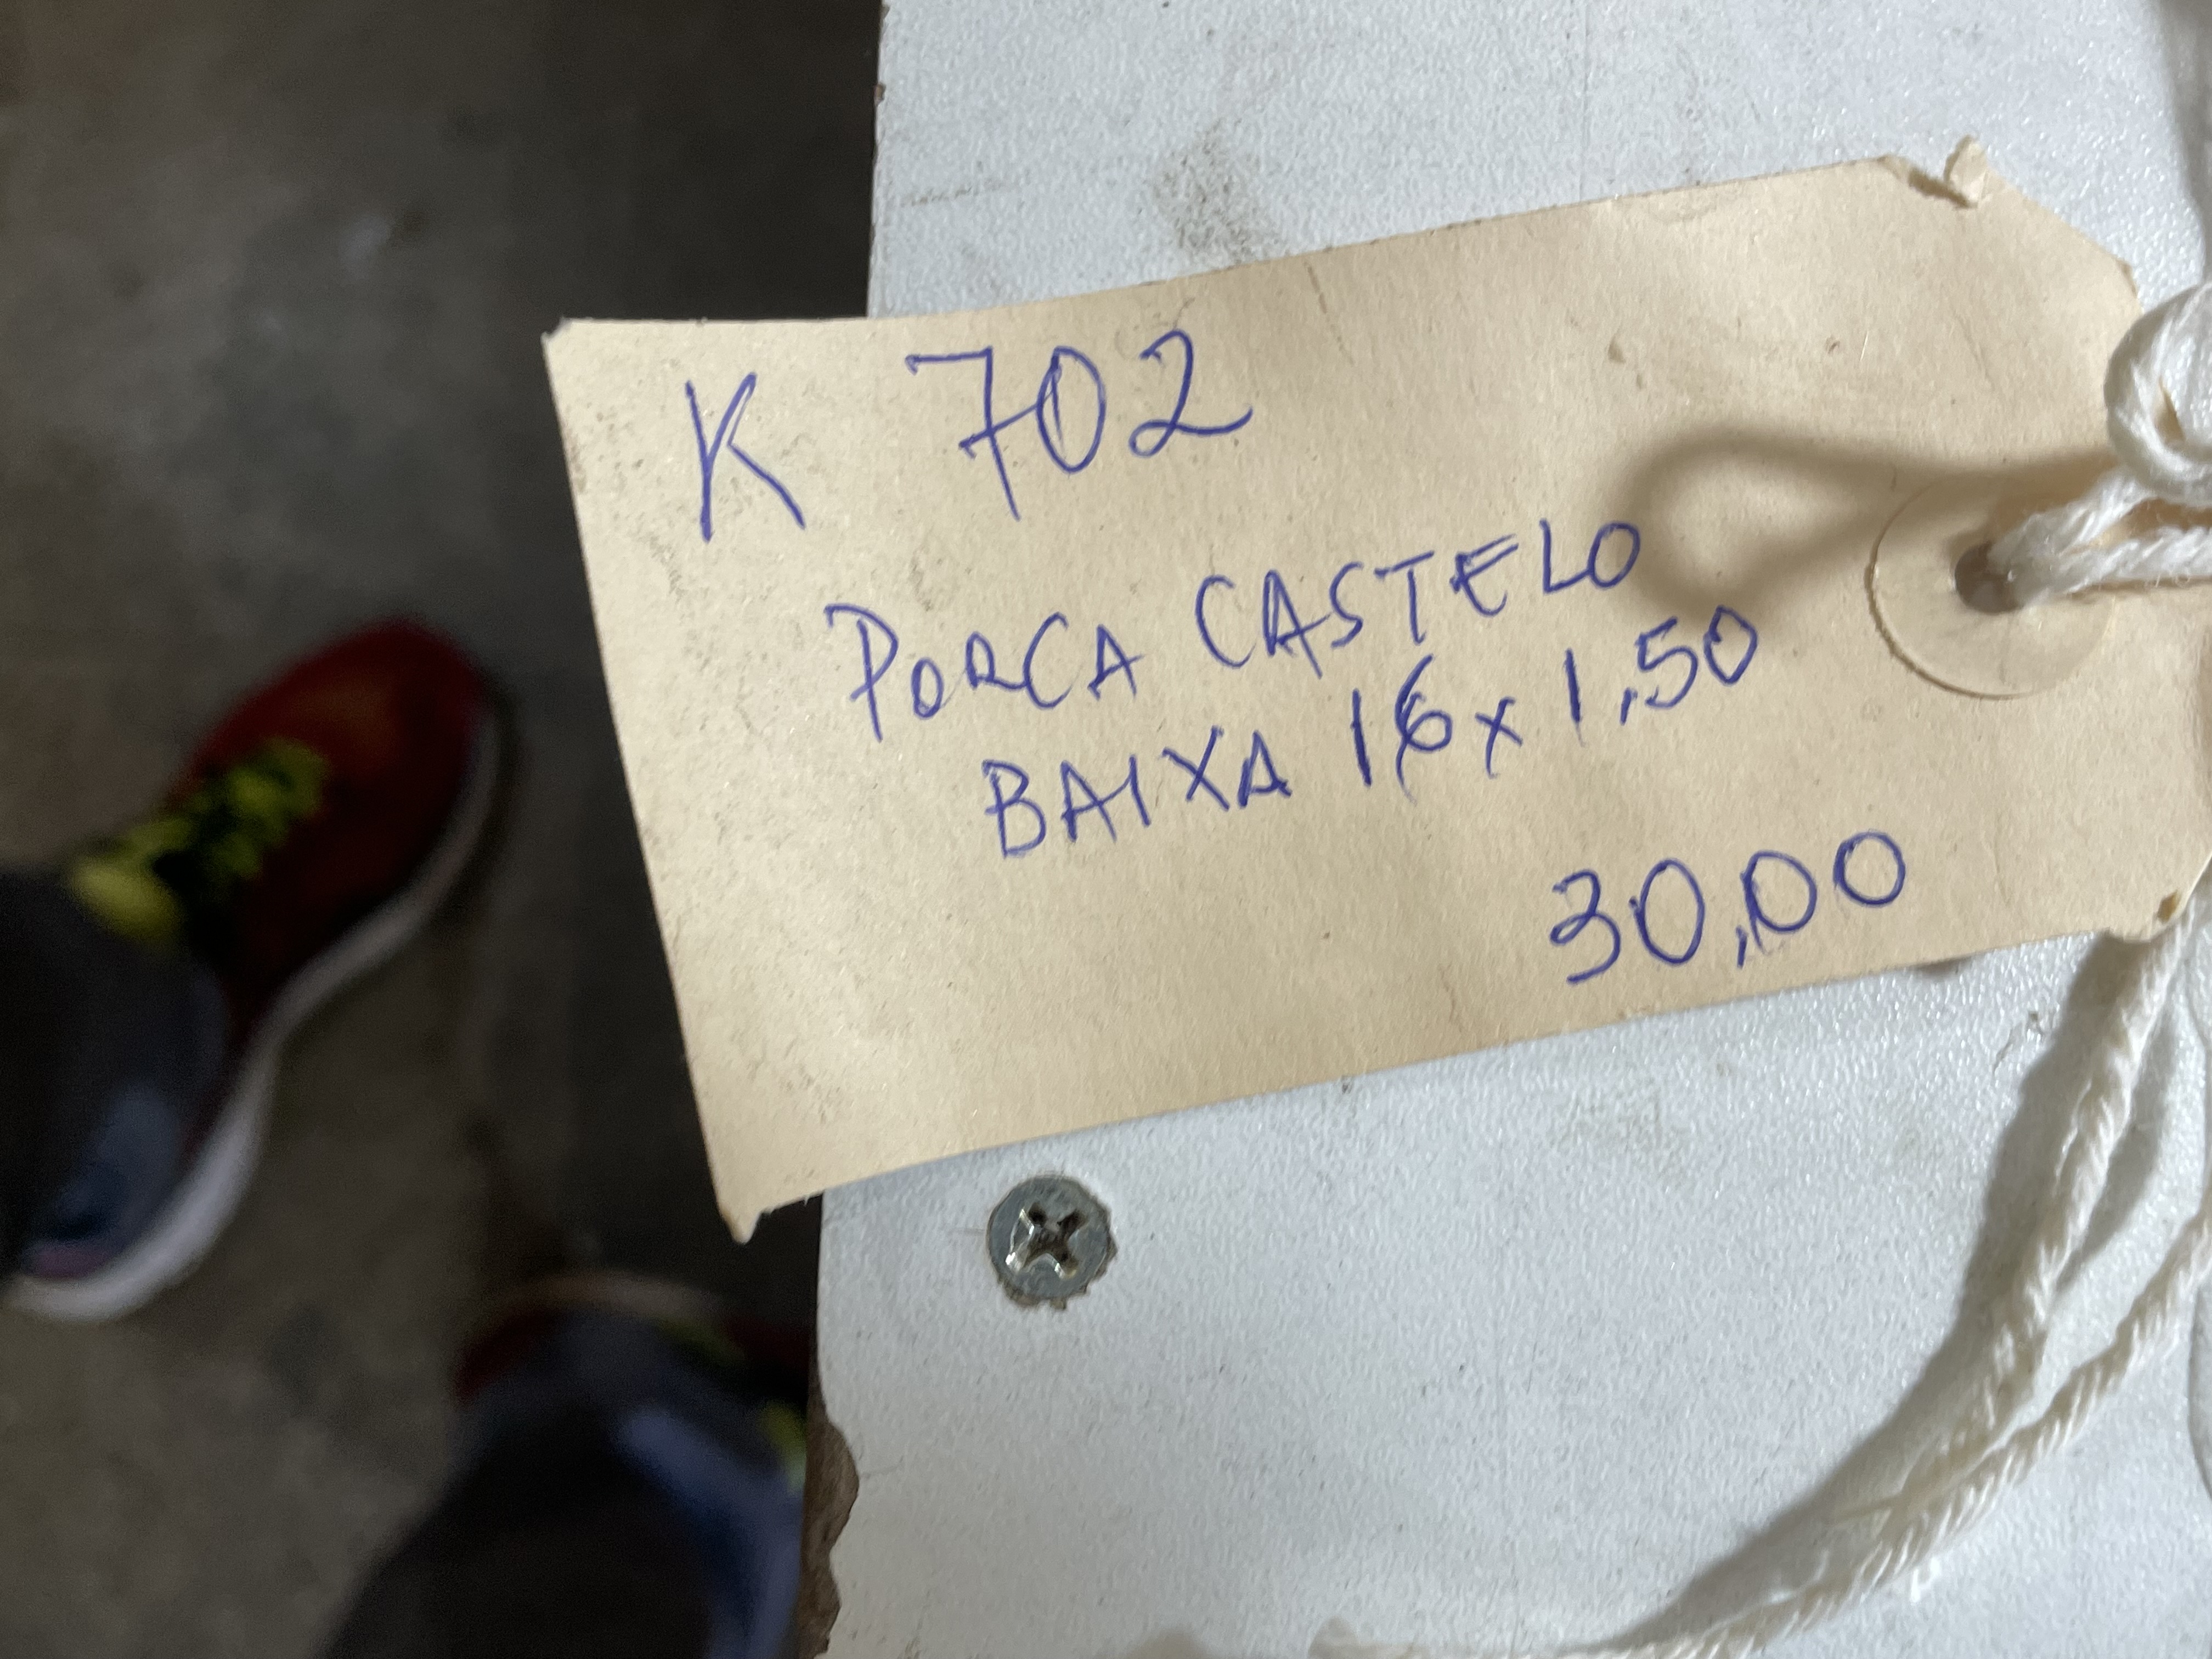 K 702
PORCA CASTELO
BAIXA 16x1,50
30,00